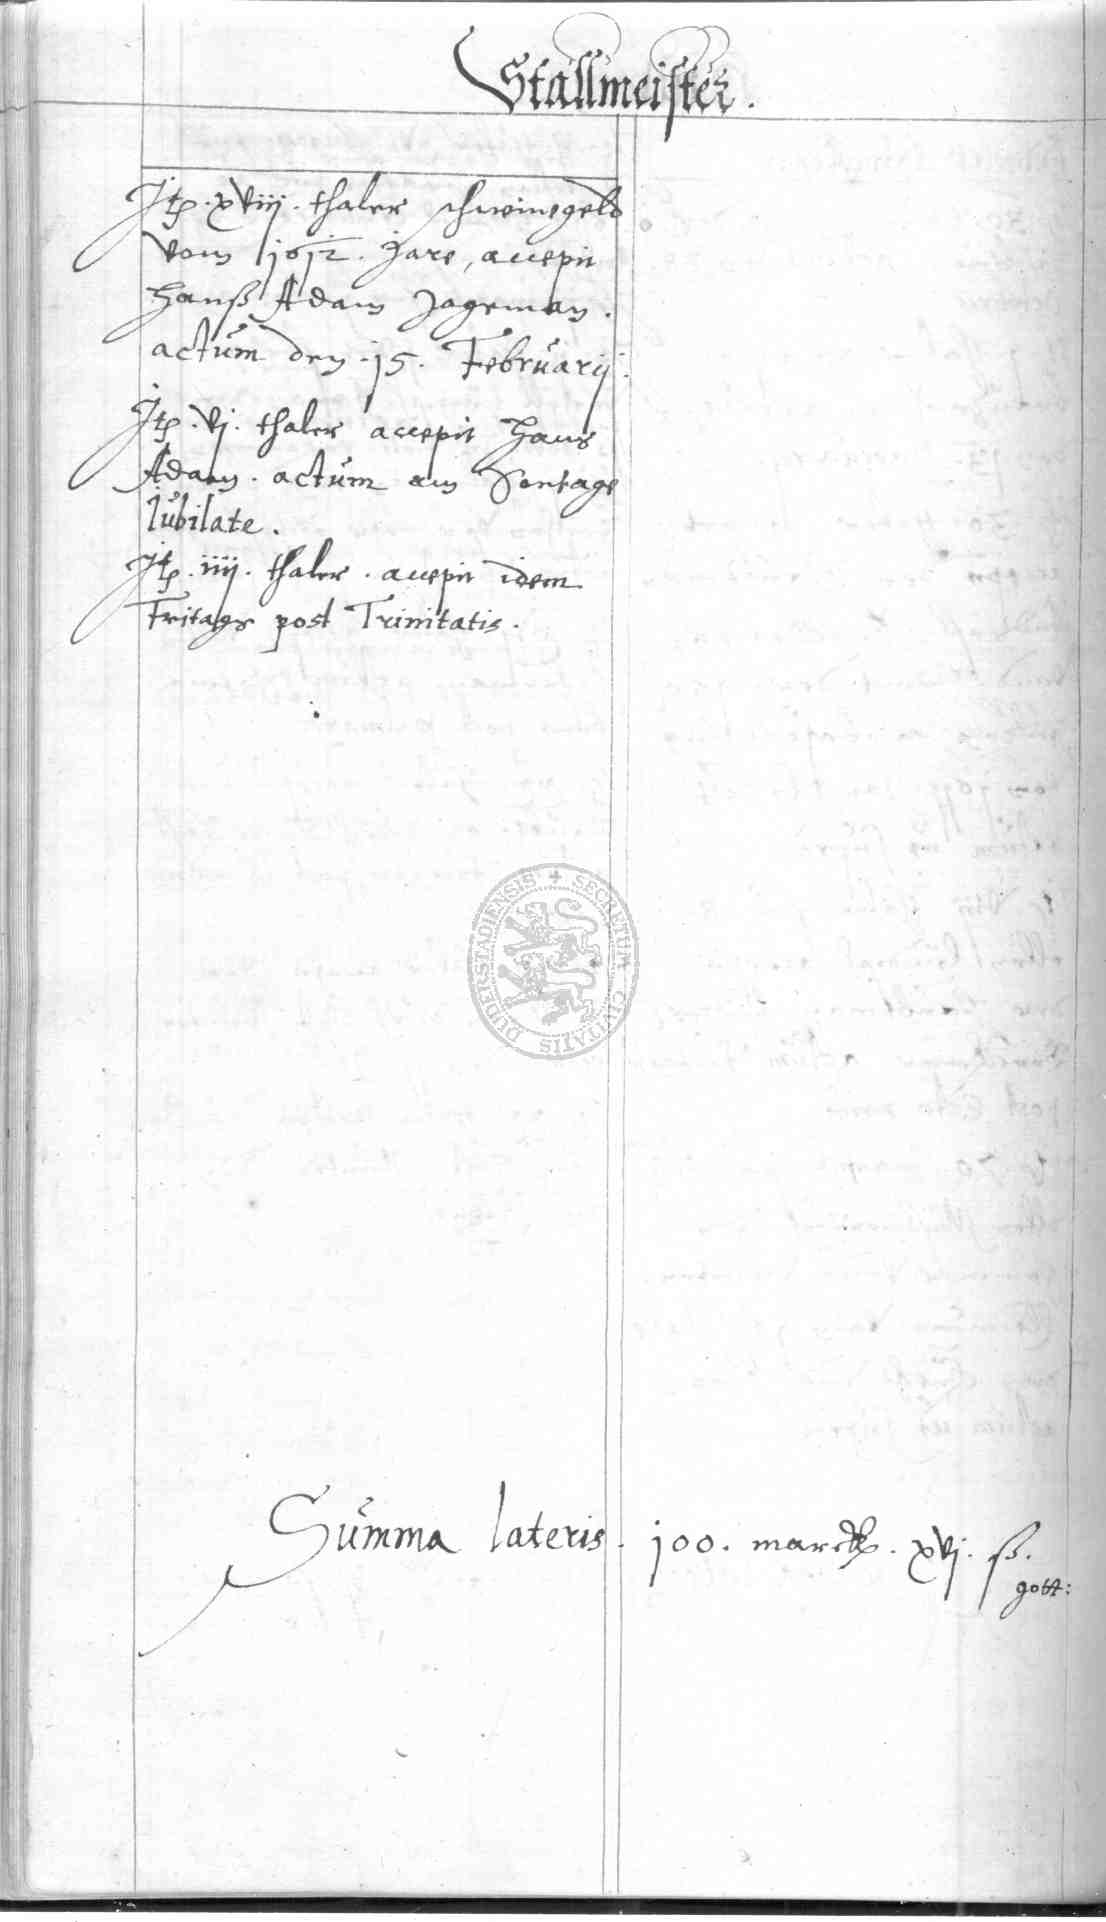 Stallmeister.
Jtp. xviij. thaler schweinegeldt
vom 1612. Jare, accepit
Hanß Adam Jageman.
actum den .15. Februarij.
Jtp. vj. thaler accepit Hans
Adam. actum am Sontage
Jubilate.
Jtp. iiij. thaler. accepit idem
Fritags post Trinitatis.
DUDERSTADIENSIS + SECRETUM CIVITATIS
Summa lateris. 100. marck. xvj. ß.
gott: